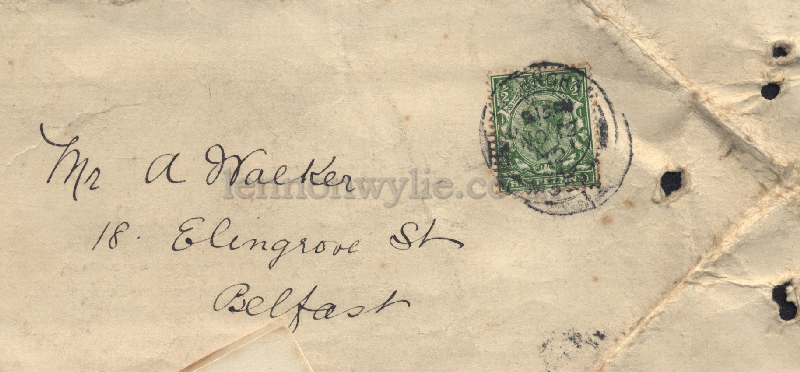 Mr A Walker
18. Elingrove St
Belfast
lennonwylie.co